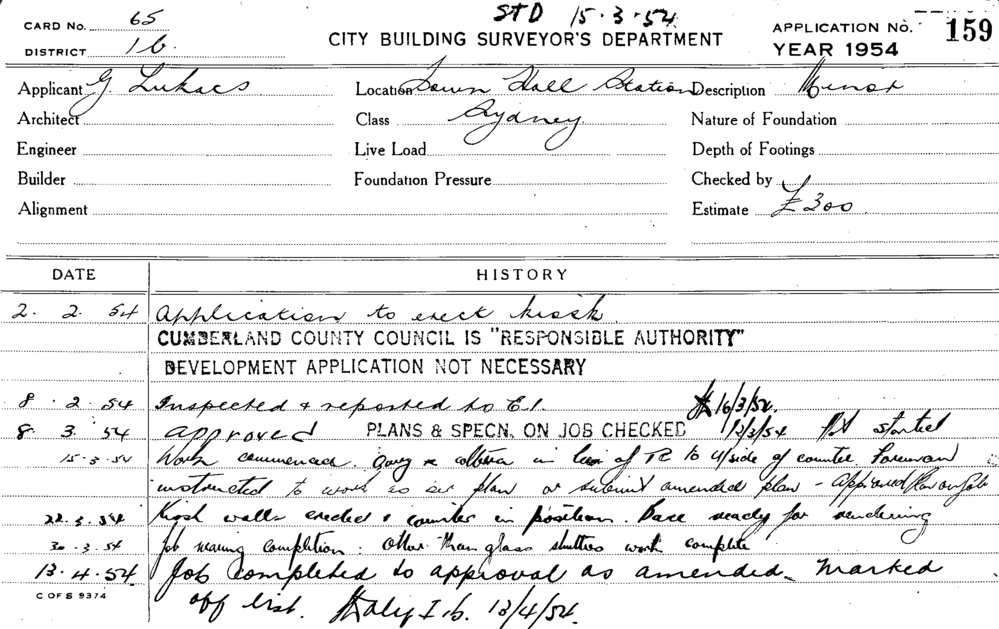 STD 15.3.54
CARD No. 65
DISTRICT 1b.
CITY BUILDING SURVEYOR'S DEPARTMENT
APPLICATION No. 159
YEAR 1954
Applicant G Lukacs
Location Town Hall Station
Description Minor
Architect
Class Sydney
Nature of Foundation
Engineer
Live Load
Depth of Footings
Builder
Foundation Pressure
Checked by
Alignment
Estimate £300
DATE HISTORY
2. 2. 54 Application to erect kiosk
CUMBERLAND COUNTY COUNCIL IS "RESPONSIBLE AUTHORITY"
DEVELOPMENT APPLICATION NOT NECESSARY
8. 2. 54 Inspected & reported to E.I. 16/3/54.
8. 3. 54 Approved PLANS & SPECN. ON JOB CHECKED 12/3/54 Not started
15.3.54 Work commenced. in lieu of TC to u/side of counter. Foreman
instructed to work as per plan or submit amended plan - Approved Plan on Job
22.3.54 Kiosk walls erected & counter in position. Base ready for rendering
30.3.54 Job nearing completion: other than glass shutters work complete
13.4.54. Job completed to approval as amended. Marked
off list. 1b. 13/4/54.
C OF S 9374